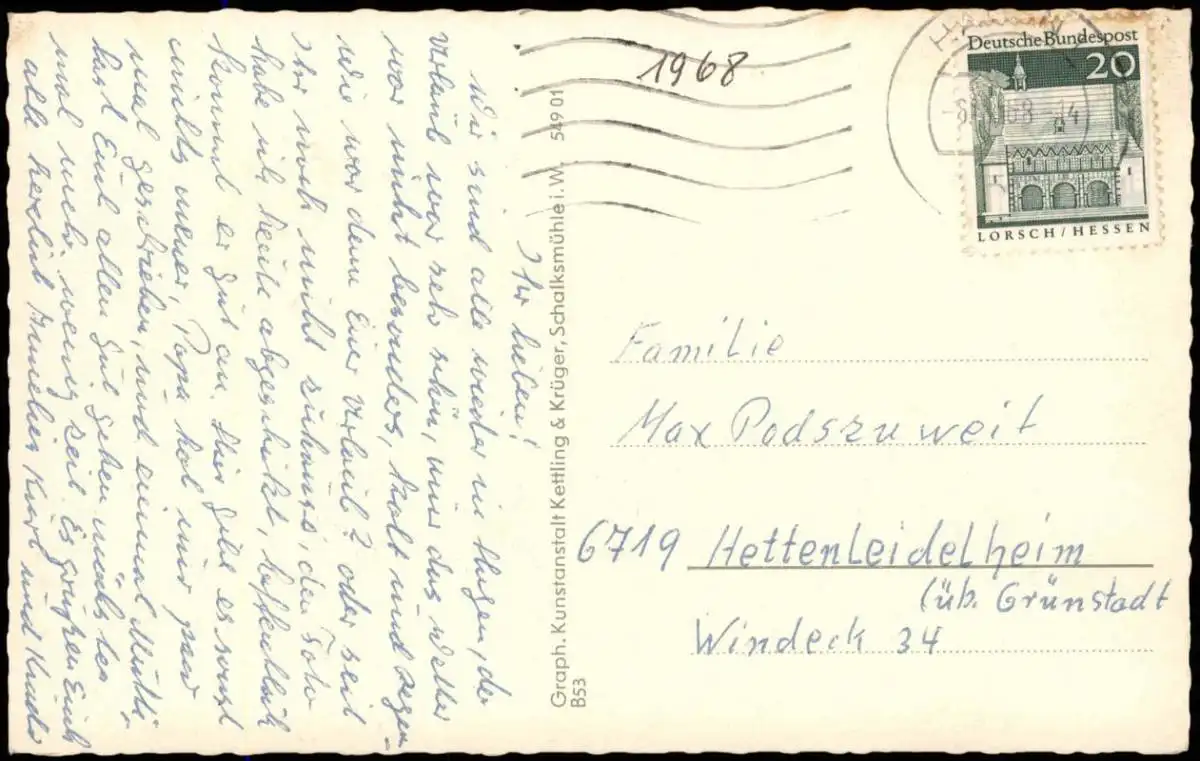 1968
Deutsche Bundespost
20
LORSCH/HESSEN
Ihr lieben!
Wir sind alle wieder in Hagen, der
Urlaub war sehr schön, nur das Wetter
war nicht besonders, kalt und Regen
wie war denn Euer Urlaub? oder seit
Ihr noch nicht zuhause, den Foto
habe ich heute abgeschickt, hoffentlich
kommt er gut an. Hier gibt es sonst
nichts neues, Papa hat nur paar
mal geschrieben, und einmal Mutti.
hat Euch allen gut gehen möchte
mal noch wenig Zeit. Es grüßen Euch
alle herzlich Kurt und
Graph. Kunstanstalt Kettling & Krüger, Schalksmühle i. W. 549 01
B53
Familie
Max Podszuweit
6719 Hettenleidelheim
(üb. Grünstadt
Windeck 34